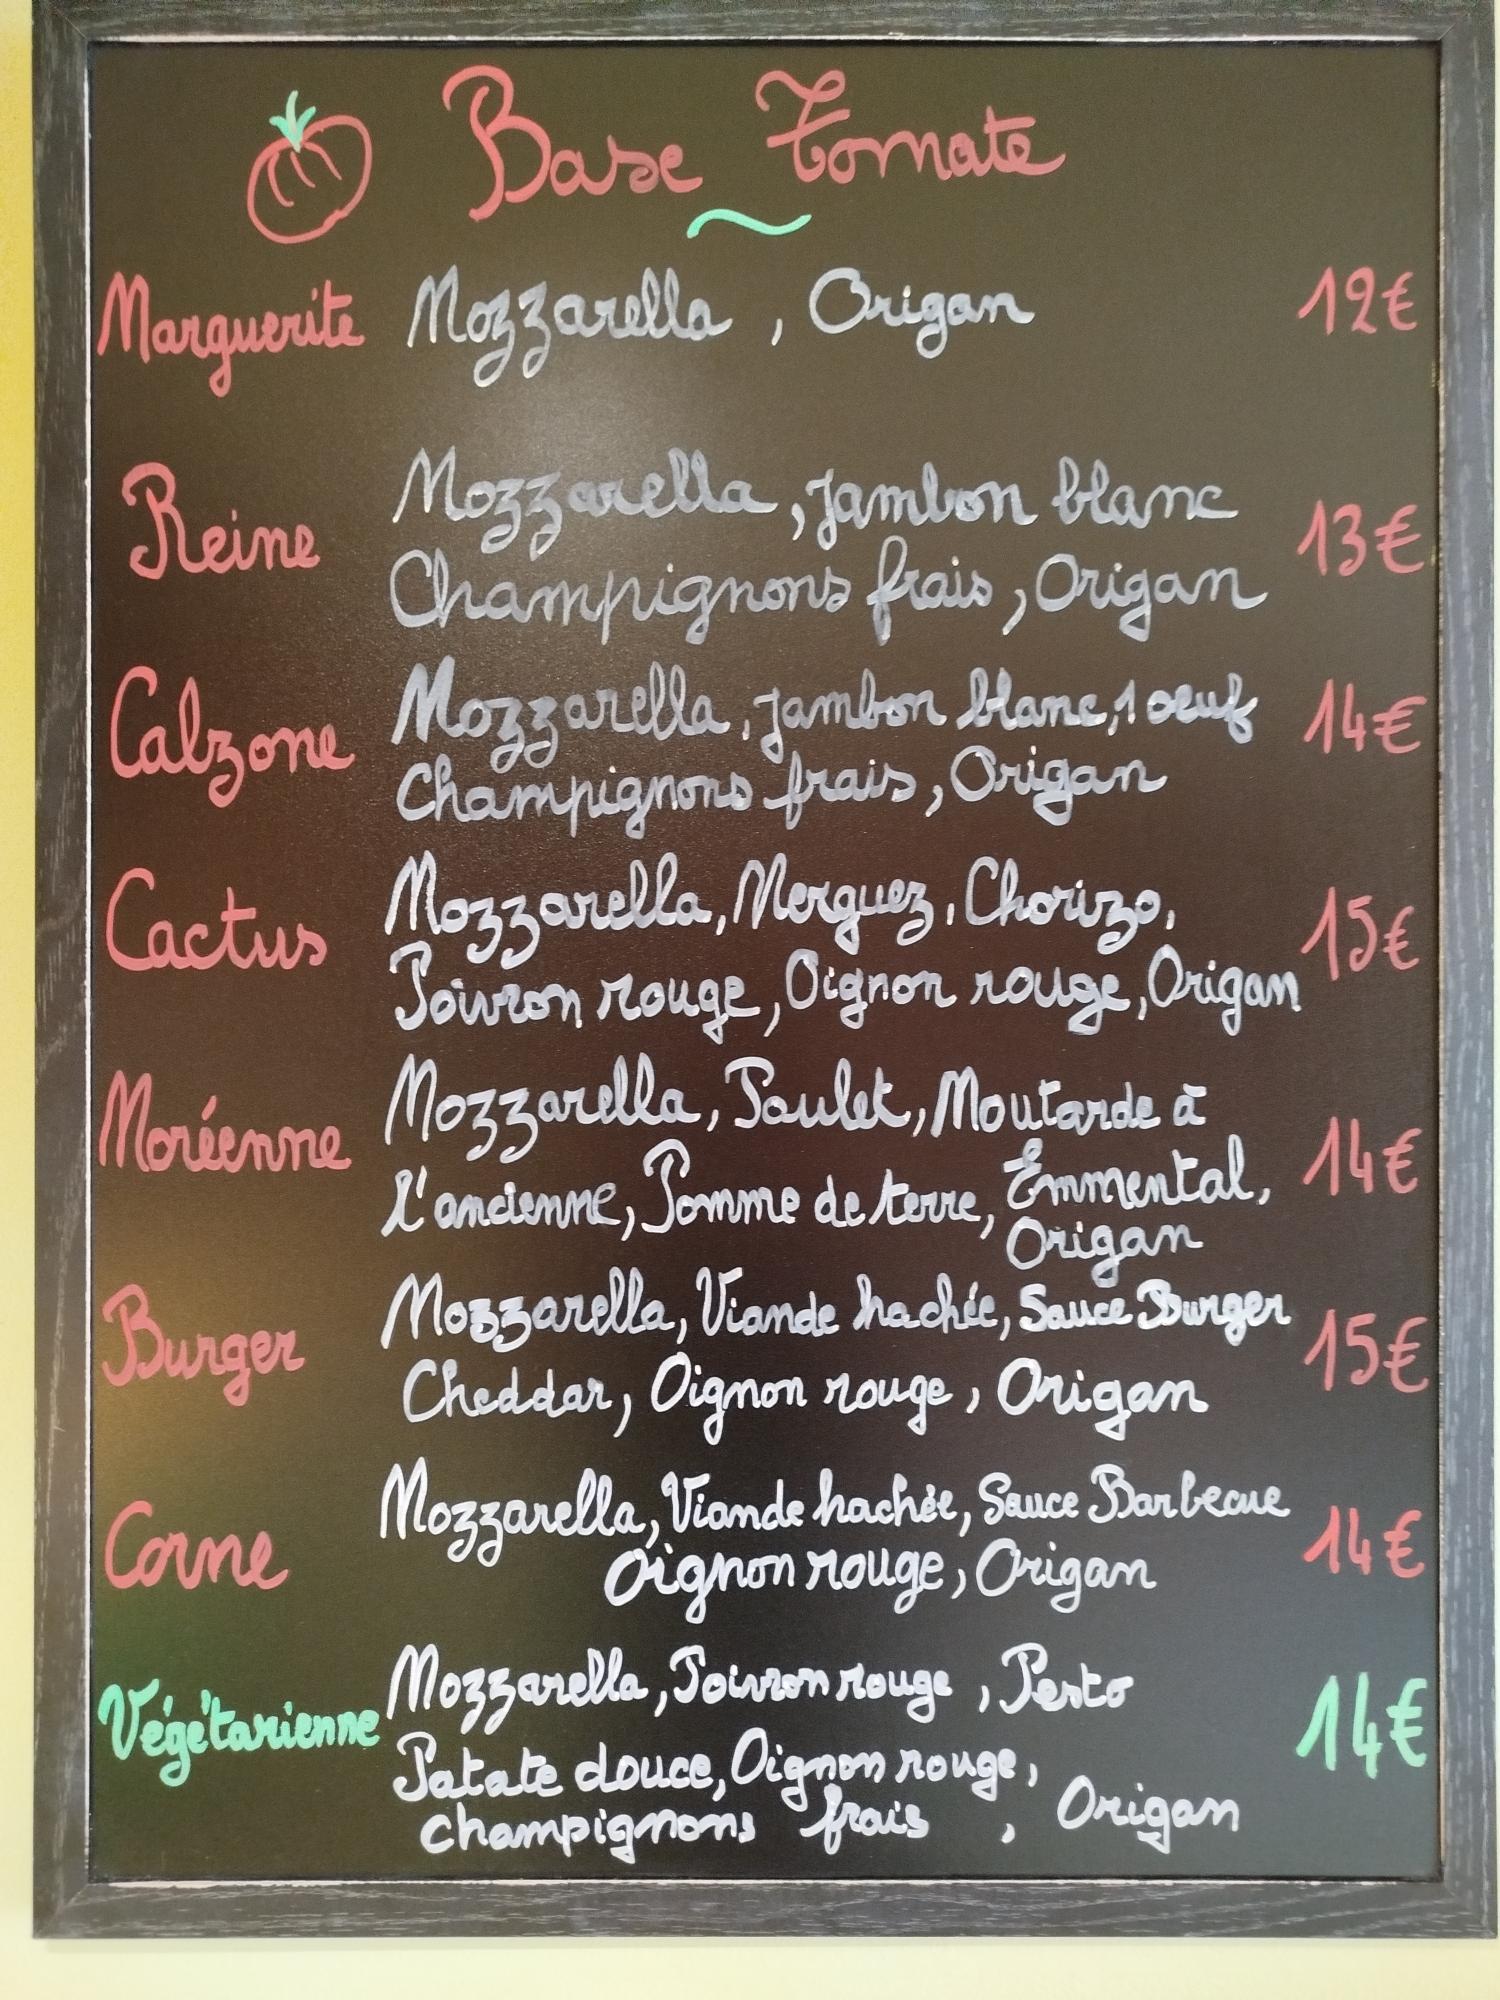 Base Tomate
Marguerite Mozzarella, Origan 12€
Mozzarella, jambon blanc
Reine 13€
Champignons frais, Origan
Calzone Mozzarella, jambon blanc, 1 oeuf 14€
Champignons frais, Origan
Mozzarella, Merguez, Chorizo,
Cactus 15€
Poivron rouge, Oignon rouge, Origan
Mozzarella, Poulet, Moutarde à
Moréenne 14€
l'ancienne, Pomme de terre, Emmental,
Origan
Mozzarella, Viande hachée, Sauce Burger
Burger 15€
Cheddar, Oignon rouge, Origan
Mozzarella, Viande hachée, Sauce Barbecue
Corne 14€
Oignon rouge, Origan
Mozzarella, Poivron rouge, Pesto
Végétarienne 14€
Patate douce, Oignon rouge,
champignons frais, Origan